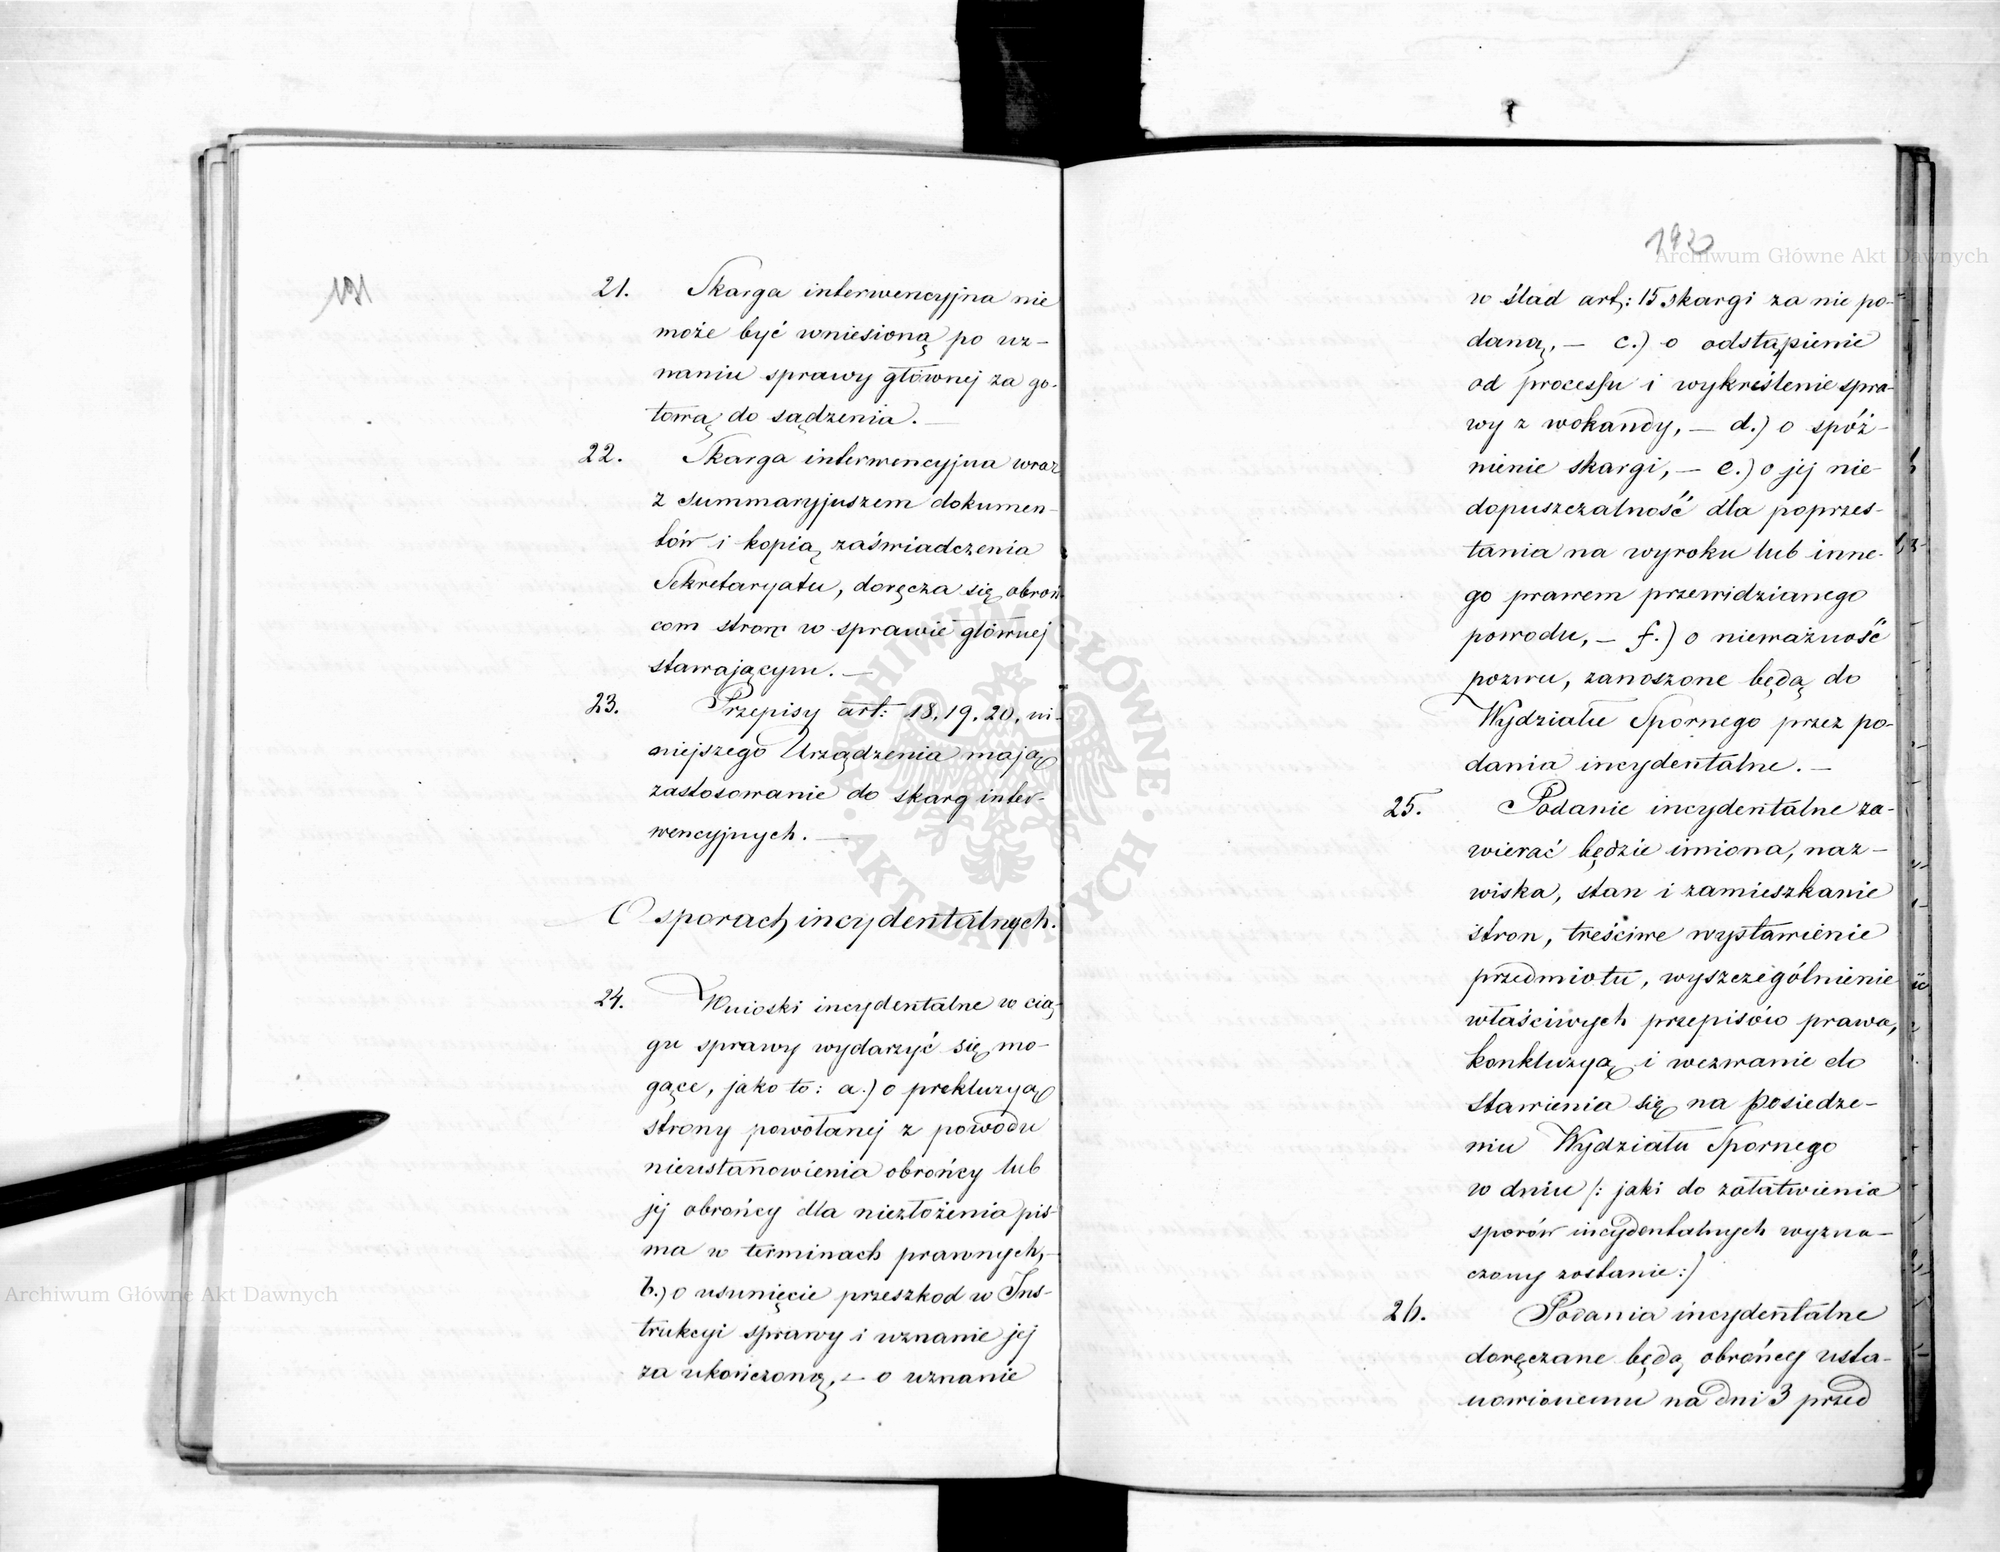 191
21. Skarga interwencyjna nie
może być wniesioną po uz-
naniu sprawy głównej za go-
tową do sądzenia. —
22. Skarga interwencyjna wraz
z summaryjuszem dokumen-
tów i kopią zaświadczenia
Sekretaryatu, doręcza się obroń-
com stron w sprawie głównej
stawającym. —
23. Przepisy art: 18. 19. 20. ni-
niejszego Urządzenia mają
zastosowanie do skarg inter-
wencyjnych. —
O sporach incydentalnych.
24. Wnioski incydentalne w cią-
gu sprawy wydarzyć się mo-
gące, jako to: a.) o prekluzyą
strony powołanej z powodu
nieustanowienia obrońcy lub
jej obrońcy dla niezłożenia pis-
ma w terminach prawnych, —
b.) o usunięcie przeszkod w Ins-
trukcyi sprawy i uznanie jej
za ukończoną, — o uznanie
192
w ślad art: 15 skargi za nie po-
daną, — c.) o odstąpienie
od processu i wykriślenie spra-
wy z wokandy, — d.) o spóź-
nienie skargi, — e.) o jej nie-
dopuszczalność dla poprzes-
tania na wyroku lub inne-
go prawem przewidzianego
powodu, — f.) o nieważność
pozwu, zanoszone będą do
Wydziału Spornego przez po-
dania incydentalne. —
25. Podanie incydentalne za-
wierać będzie imiona, naz-
wiska, stan i zamieszkanie
stron, treściwe wystawienie
przedmiotu, wyszczególnienie
właściwych przepisów prawa,
konkluzyą i wezwanie do
stawienia się na posiedze-
niu Wydziału Spornego
w dniu /: jaki do załatwienia
sporów incydentalnych wyzna-
czony zostanie :/
26. Podania incydentalne
doręczane będą obrońcy usta-
nowionemu na dni 3 przed
Archiwum Główne Akt Dawnych
Archiwum Główne Akt Dawnych
ARCHIWUM GŁÓWNE · AKT DAWNYCH ·